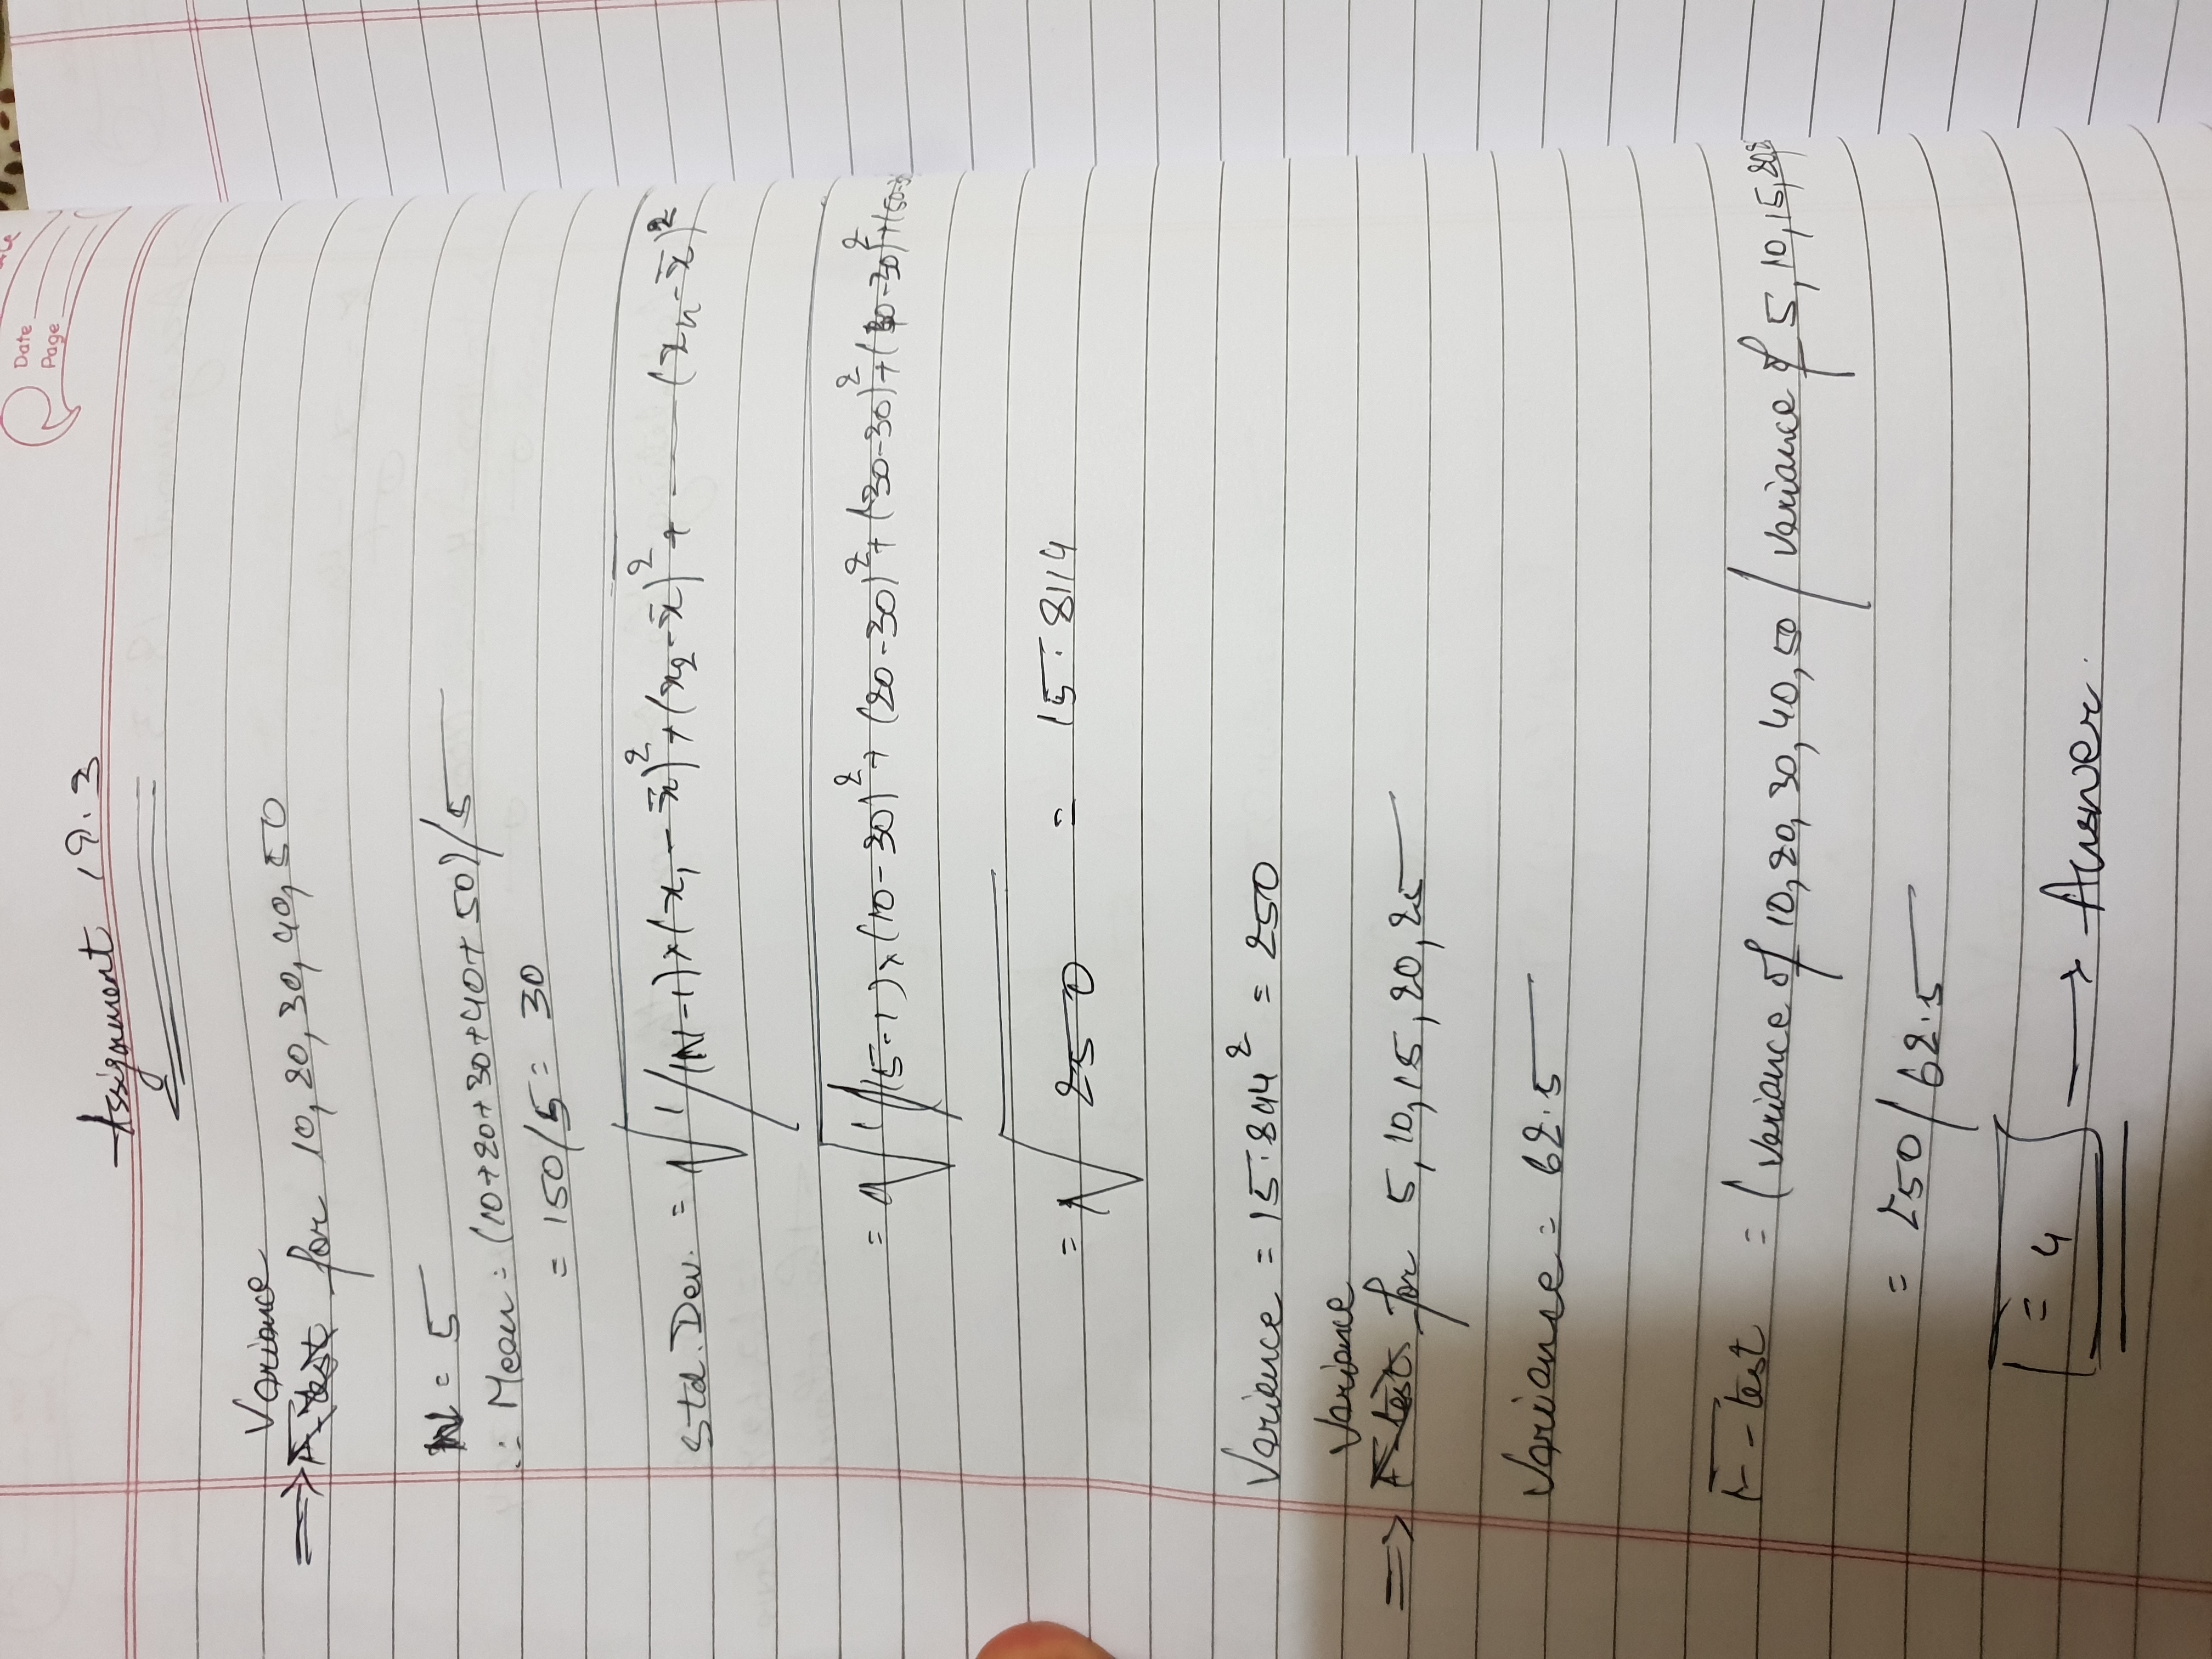 Date
Page
Assignment 19.3
Variance
=> F-test for 10, 20, 30, 40, 50
N = 5
∴ Mean = (10+20+30+40+50)/5
= 150/5 = 30
Std. Dev. = √1/(N-1)×(x₁-x̄)²+(x₂-x̄)²+ —— (xn-x̄)²
= √1/(5-1)×(10-30)²+(20-30)²+(30-30)²+(40-30)²+(50-3
= √250 = 15.8114
Variance = 15.8114² = 250
Variance
=> F-test for 5, 10, 15, 20, 25
Variance = 62.5
F-test = (variance of 10, 20, 30, 40, 50 / variance of 5, 10, 15, 20, 2
= 250/62.5
= 4 → Answer.